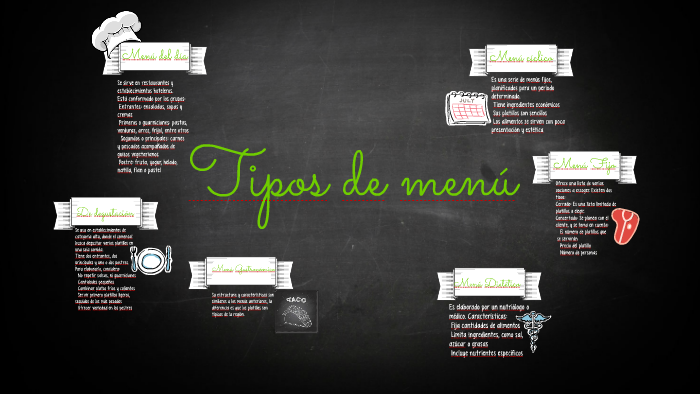 Tipos de menú
Menú del día
Se sirve en restaurantes y
establecimientos hoteleros.
Está conformado por los grupos:
Entrantes: ensaladas, sopas y
cremas
Primeros o guarniciones: pastas,
verduras, arroz, frijol, entre otros
Segundos o principales: carnes
y pescados acompañados de
guisos vegetarianos
Postre: fruta, yogur, helado,
natilla, flan o pastel
De degustación
Se usa en establecimientos de
categoría alta, donde el comensal
busca degustar varios platillos en
una sola comida.
Tiene dos entrantes, dos
principales y uno o dos postres.
Para elaborarlo, considera:
No repetir salsas, ni guarniciones
Cantidades pequeñas
Combinar platos fríos y calientes
Servir primero platillos ligeros,
seguidos de los más pesados
Ofrecer variedad en los postres
Menú Gastronómico
Su estructura y características son
similares a los menús anteriores, la
diferencia es que los platillos son
típicos de la región.
TACO
Menú cíclico
Es una serie de menús fijos,
planificados para un periodo
determinado.
Tiene ingredientes económicos
Sus platillos son sencillos
Los alimentos se sirven con poca
presentación y estética
JULY
Menú Fijo
Ofrece una lista de varias
opciones a escoger. Existen dos
tipos:
Cerrado: Es una lista limitada de
platillos a elegir.
Concertado: Se planea con el
cliente, y se toma en cuenta:
El número de platillos que
se servirán
Precio del platillo
Número de personas
Menú Dietético
Es elaborado por un nutriólogo o
médico. Características:
Fija cantidades de alimentos
Limita ingredientes, como sal,
azúcar o grasas
Incluye nutrientes específicos